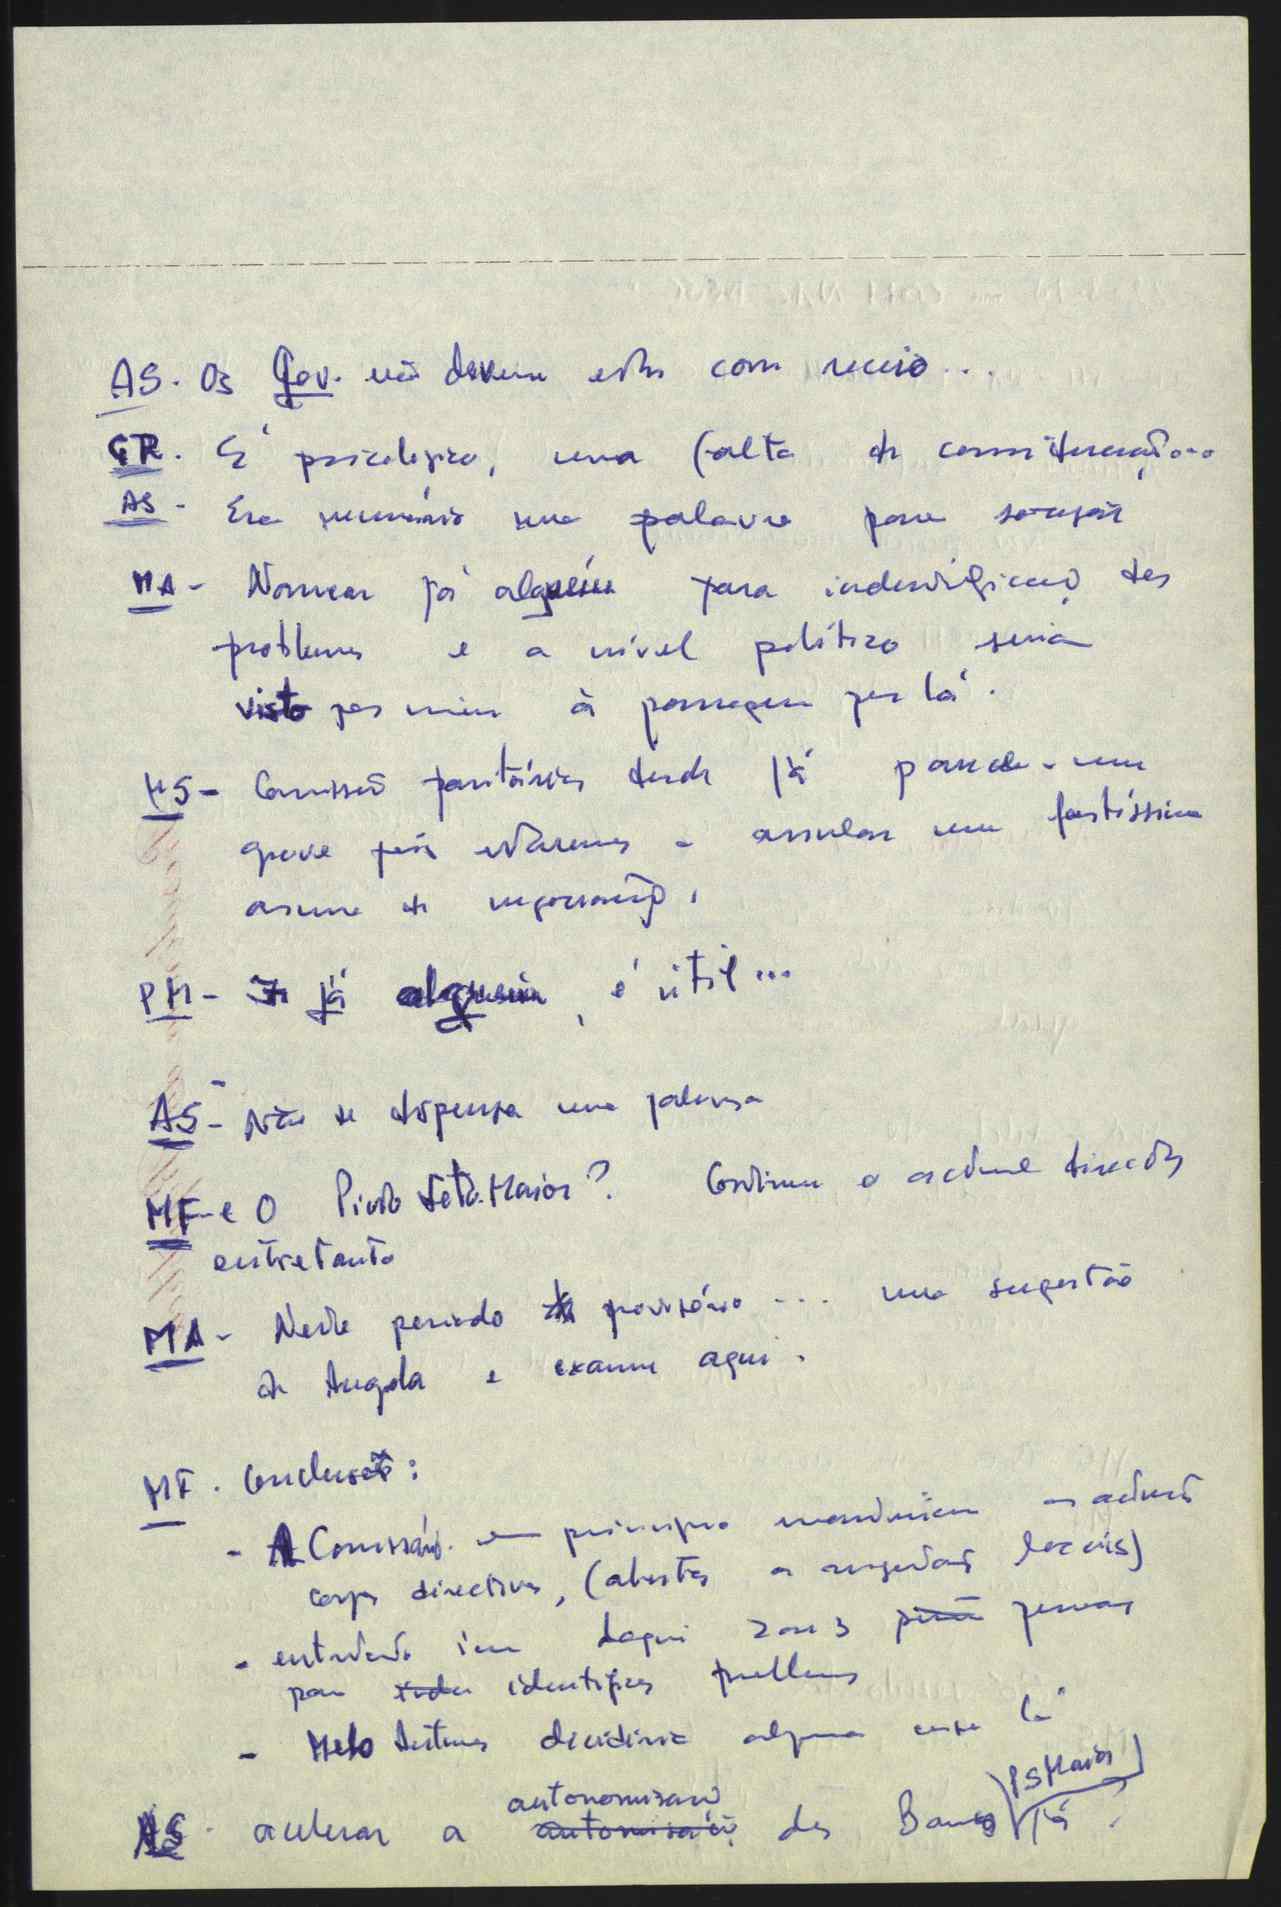 AS. Os Gov. não devem estar com receio...
GR. É psicológico, uma falta de consideração...
AS - Era necessário uma palavra para sossegar
MA - Nomear já alguém para indentificação dos
problemas e a nível político seria
visto por mim à passagem por lá.
HS - Comissão paritárias desde já parece-me
grave pois estaremos a anular uma fortíssima
arma de negociação.
PM - Ir já alguém, é útil...
AS - Não se dispensa uma palavra
MF - e o Pinto Soto-Maior? Continua a actual direcção
entretanto
MA - Neste periodo provisório... uma sugestão
de Angola e exame aqui.
MF. Conclusão:
- A Comissão. em principio mantinham os actuais
corpos directivos, (abertos a sugestões locais)
- entretanto iam daqui 2 ou 3 pessoas
para identificar problemas
- Melo Antunes decidiria alguma coisa lá
AS. acelerar a autonomização dos Bancos já
PSMaior